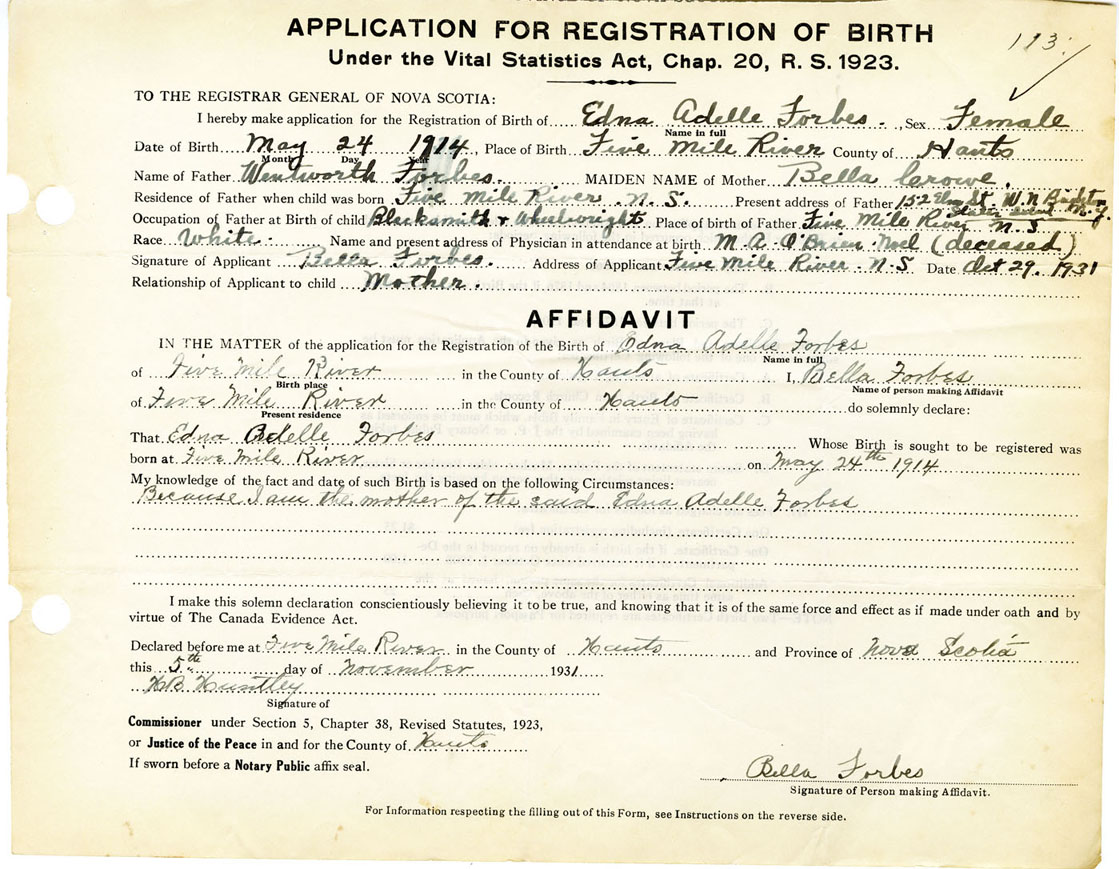 APPLICATION FOR REGISTRATION OF BIRTH
Under the Vital Statistics Act, Chap. 20, R. S. 1923.
TO THE REGISTRAR GENERAL OF NOVA SCOTIA:
I hereby make application for the Registration of Birth of Edna Adelle Forbes. Sex Female
Name in full
Date of Birth May 24 1914, Place of Birth Five Mile River County of Hants
Month Day Year
Name of Father Wentworth Forbes. MAIDEN NAME of Mother Bella Crowe.
Residence of Father when child was born Five Mile River. N. S. Present address of Father 152 Elm St. W. N. Brighton
Staten Island N. Y
Occupation of Father at Birth of child Blacksmith & Wheelwright Place of birth of Father Five Mile River N. S
Race White. Name and present address of Physician in attendance at birth M. A. O'Brien. Noel (deceased)
Signature of Applicant Bella Forbes. Address of Applicant Five Mile River. N. S. Date Oct 29. 1931
Relationship of Applicant to child Mother.
AFFIDAVIT
IN THE MATTER of the application for the Registration of the Birth of Edna Adelle Forbes
Name in full
of Five Mile River in the County of Hants I, Bella Forbes
Birth place Name of person making Affidavit
of Five Mile River in the County of Hants do solemnly declare:
Present residence
That Edna Adelle Forbes Whose Birth is sought to be registered was
born at Five Mile River on May 24th 1914
My knowledge of the fact and date of such Birth is based on the following Circumstances:
Because I am the mother of the said Edna Adelle Forbes
I make this solemn declaration conscientiously believing it to be true, and knowing that it is of the same force and effect as if made under oath and by
virtue of The Canada Evidence Act.
Declared before me at Five Mile River in the County of Hants and Province of Nova Scotia
this 5th day of November 1931
H B Huntley
Signature of
Commissioner under Section 5, Chapter 38, Revised Statutes, 1923,
or Justice of the Peace in and for the County of Hants
If sworn before a Notary Public affix seal.
Bella Forbes
Signature of Person making Affidavit.
For Information respecting the filling out of this Form, see Instructions on the reverse side.